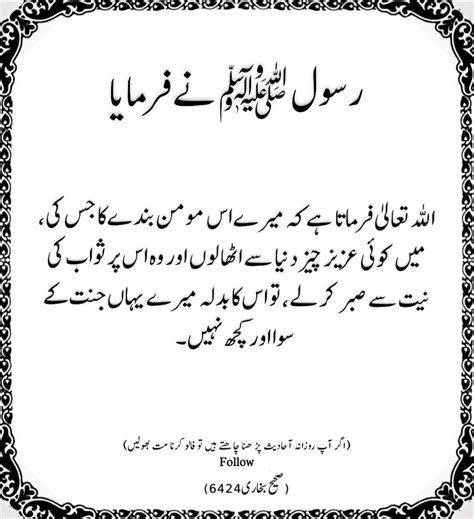 رسول ﷺ نے فرمایا
اللہ تعالیٰ فرماتا ہے کہ میرے اس مومن بندے کا جس کی،
میں کوئی عزیز چیز دنیا سے اٹھا لوں اور وہ اس پر ثواب کی
نیت سے صبر کر لے، تو اس کا بدلہ میرے یہاں جنت کے
سوا اور کچھ نہیں۔
(اگر آپ روزانہ آحادیث پڑھنا چاھتے ہیں تو فالو کرنا مت بھولیں)
Follow
(صحیح بخاری6424)